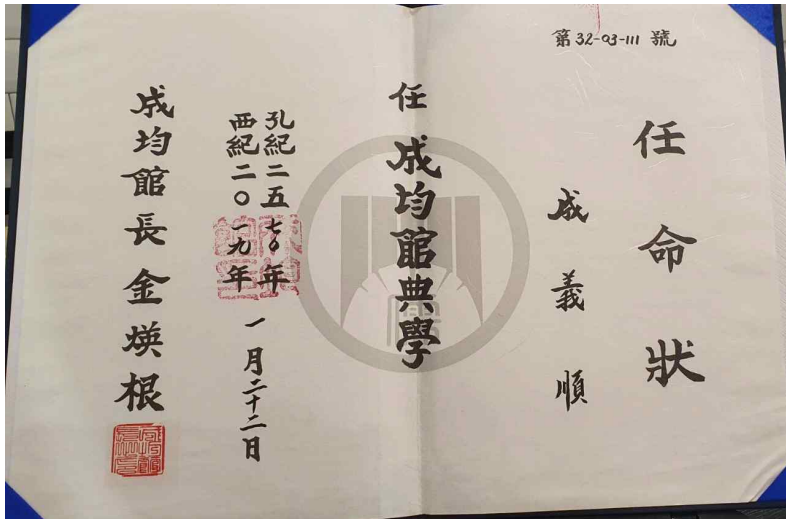 第 32-03-111 號
任命狀
成義順
任 成均館典學
孔紀二五七〇年
西紀二〇一九年 一月二十二日
成均館長 金煐根